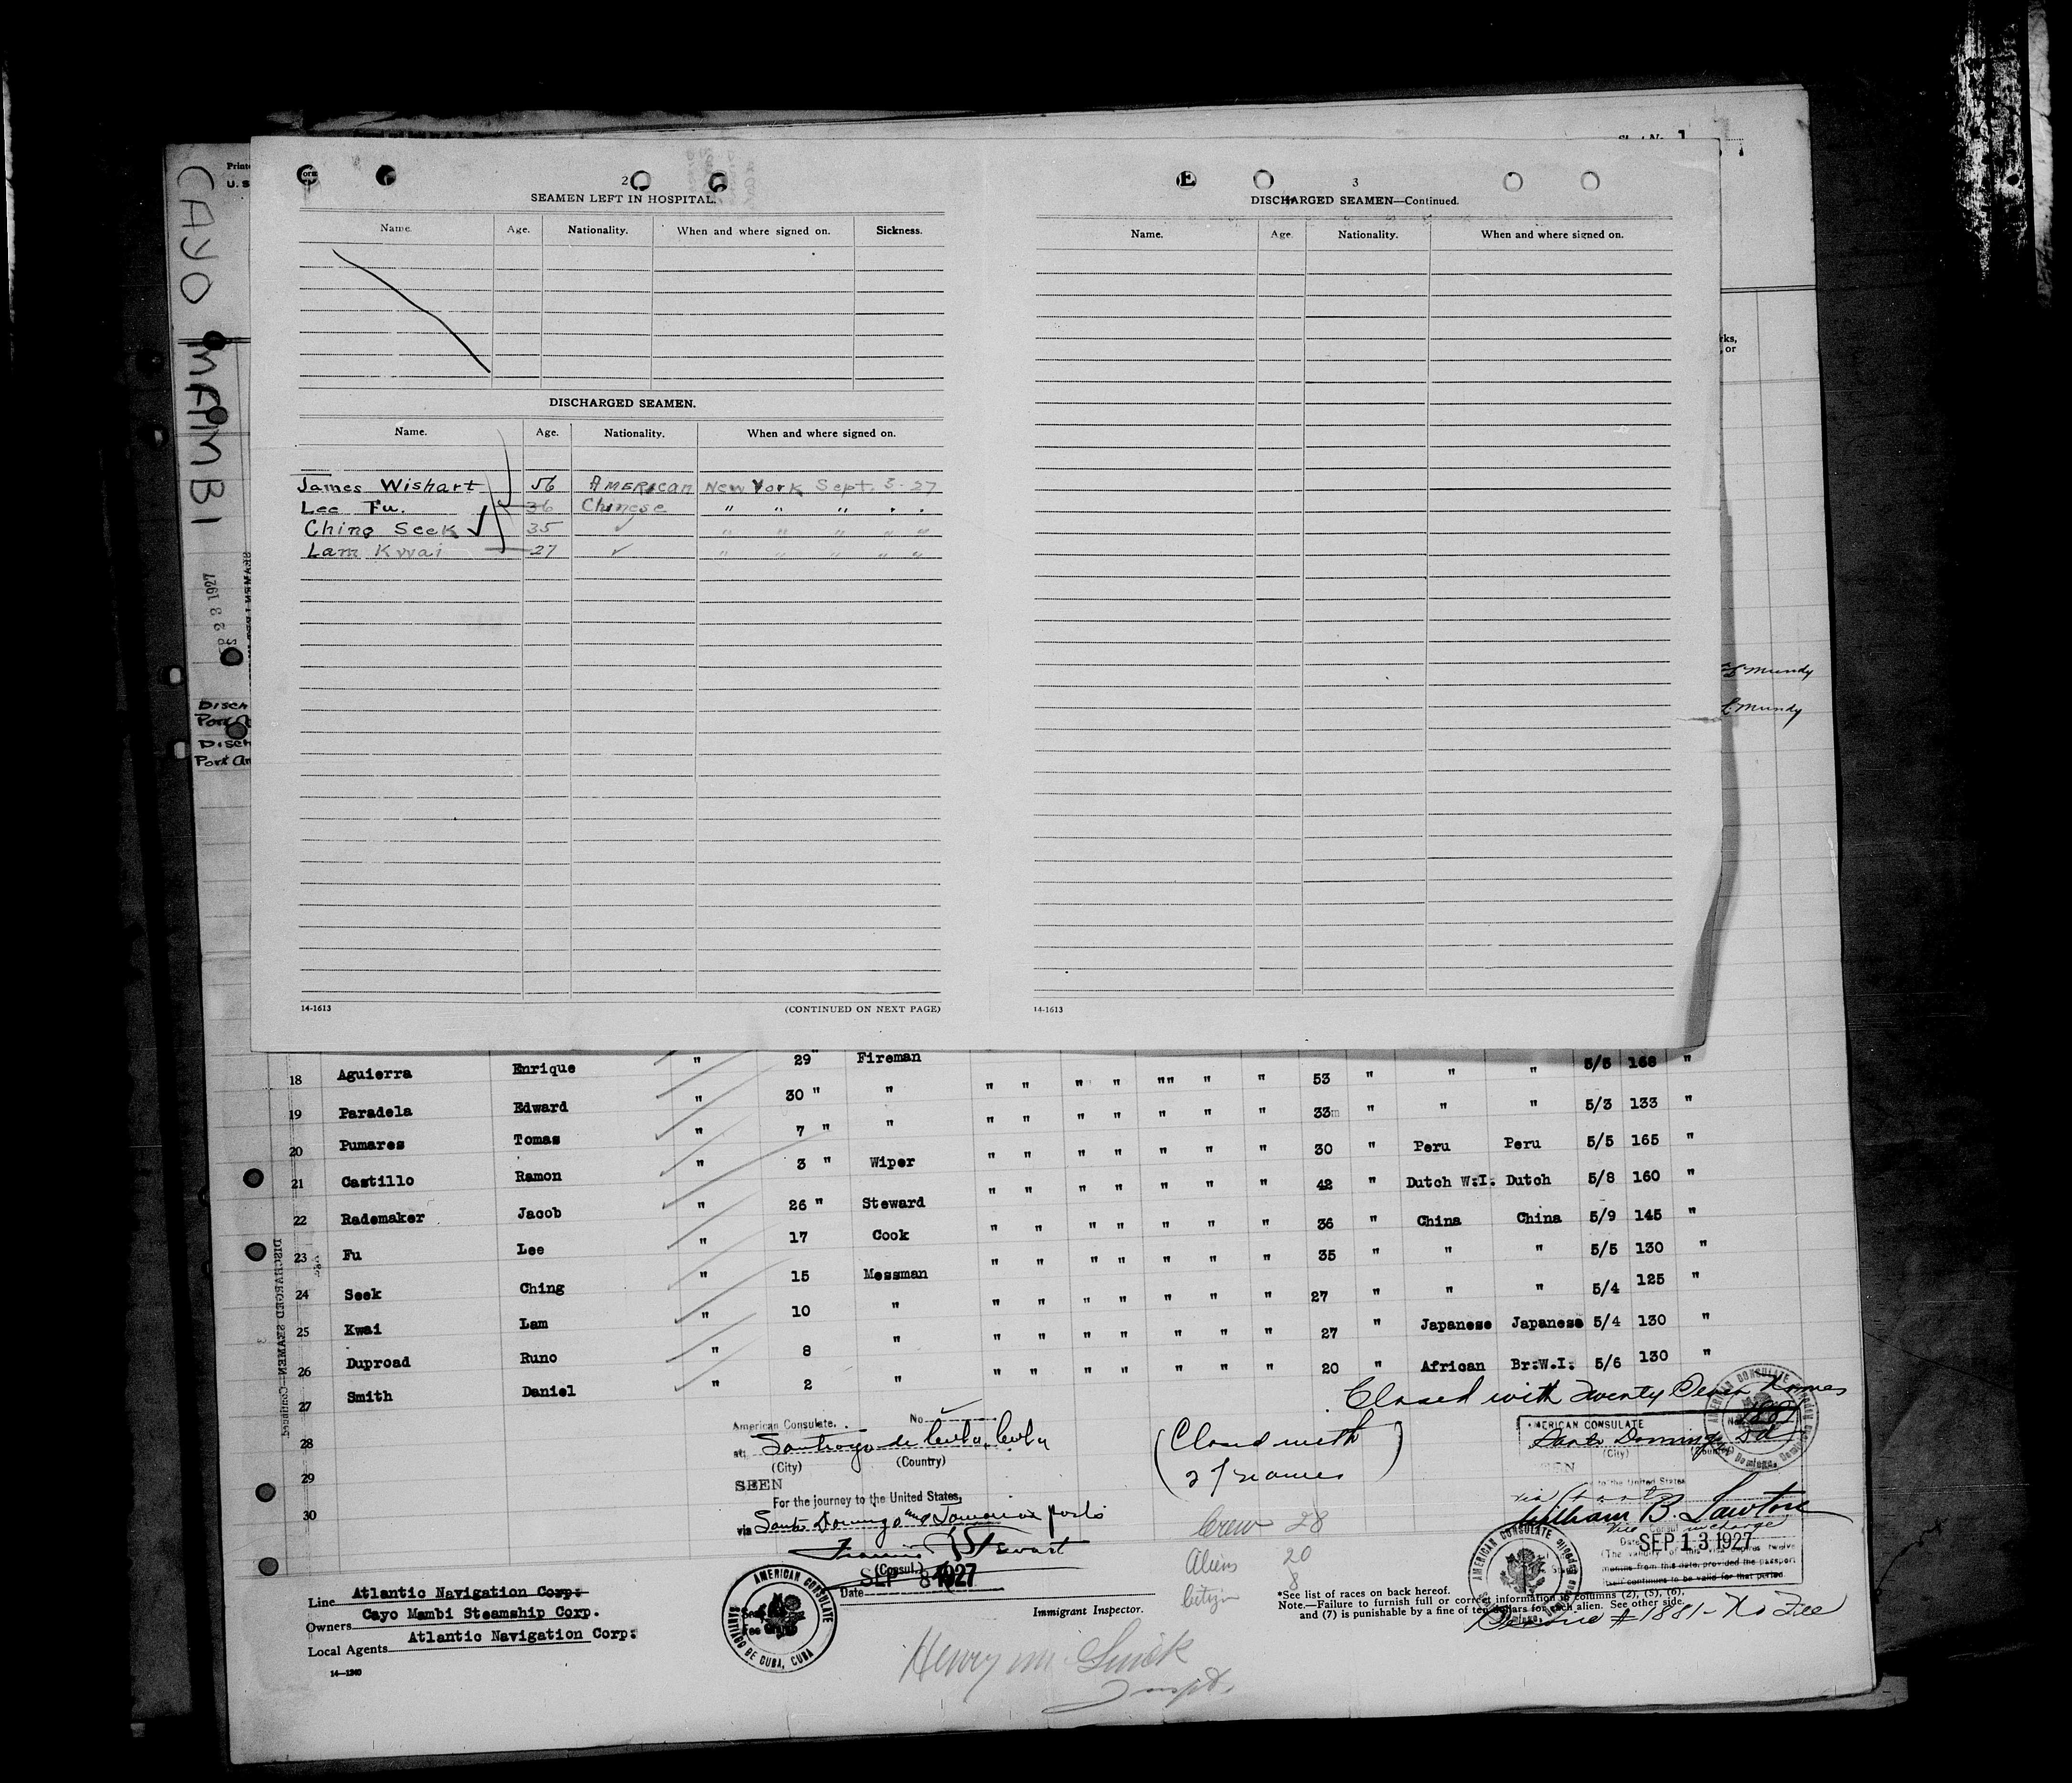 Sheet No. 1
Printed
U. S
CAYO MAMBI
2 3 1927
Disch
Port
Disch
Port An
2
SEAMEN LEFT IN HOSPITAL.
Name. Age. Nationality. When and where signed on. Sickness.
DISCHARGED SEAMEN.
Name. Age. Nationality. When and where signed on.
James Wishart 56 American New York Sept. 3-27
Lee Fu. 36 Chinese " " " . .
Ching Seek √ 35 ✓ " " " " "
Lam Kwai 27 ✓ " " " " "
14-1613 (CONTINUED ON NEXT PAGE)
E 3
DISCHARGED SEAMEN—Continued.
Name. Age. Nationality. When and where signed on.
14-1613
rks,
or
L Mundy
L. Mundy
DISCHARGED SEAMEN—Continued
18 Aguierra Enrique " 29 " Fireman " " " " "" " " 53 " " " 5/5 168 "
19 Paradela Edward " 30 " " " " " " " " " 33 " " " 5/3 133 "
20 Pumares Tomas " 7 " " " " " " " " " 30 " Peru Peru 5/5 165 "
21 Castillo Ramon " 3 " Wiper " " " " " " " 42 " Dutch W.I. Dutch 5/8 160 "
22 Rademaker Jacob " 26 " Steward " " " " " " " 36 " China China 5/9 145 "
23 Fu Lee " 17 Cook " " " " " " " 35 " " " 5/5 130 "
24 Seek Ching " 15 Messman " " " " " " " 27 " " " 5/4 125 "
25 Kwai Lam " 10 " " " " " " " " 27 " Japanese Japanese 5/4 130 "
26 Duproad Runo " 8 " " " " " " " " 20 " African Br.W.I. 5/6 130 "
27 Smith Daniel " 2 "
28
29
30
Closed with Twenty Seven Names
American Consulate. No.
at: Santiago de Cuba, Cuba
(City) (Country)
SEEN
For the journey to the United States,
via Santo Domingo and Jamaica ports
Francis Stewart
(Consul.)
SEP 8 1927
Date
(Closed with
27 names)
Crew 28
Aliens 20
Citizen 8
AMERICAN CONSULATE
Santo Domingo
(City) (Country)
to the United States
William B. Lawton
Vice Consul in charge
Date SEP 13 1927
(The validity of this visa expires twelve
months from this date, provided the passport
itself continues to be valid for that period.
Service # 1881 - No Fee
Line Atlantic Navigation Corp.
Owners Cayo Mambi Steamship Corp.
Local Agents Atlantic Navigation Corp.
14—1240
AMERICAN CONSULATE
SANTIAGO DE CUBA, CUBA
AMERICAN CONSULATE
Immigrant Inspector.
*See list of races on back hereof.
Note.—Failure to furnish full or correct information in columns (2), (5), (6),
and (7) is punishable by a fine of ten dollars for each alien. See other side.
Henry M.
Inspt.